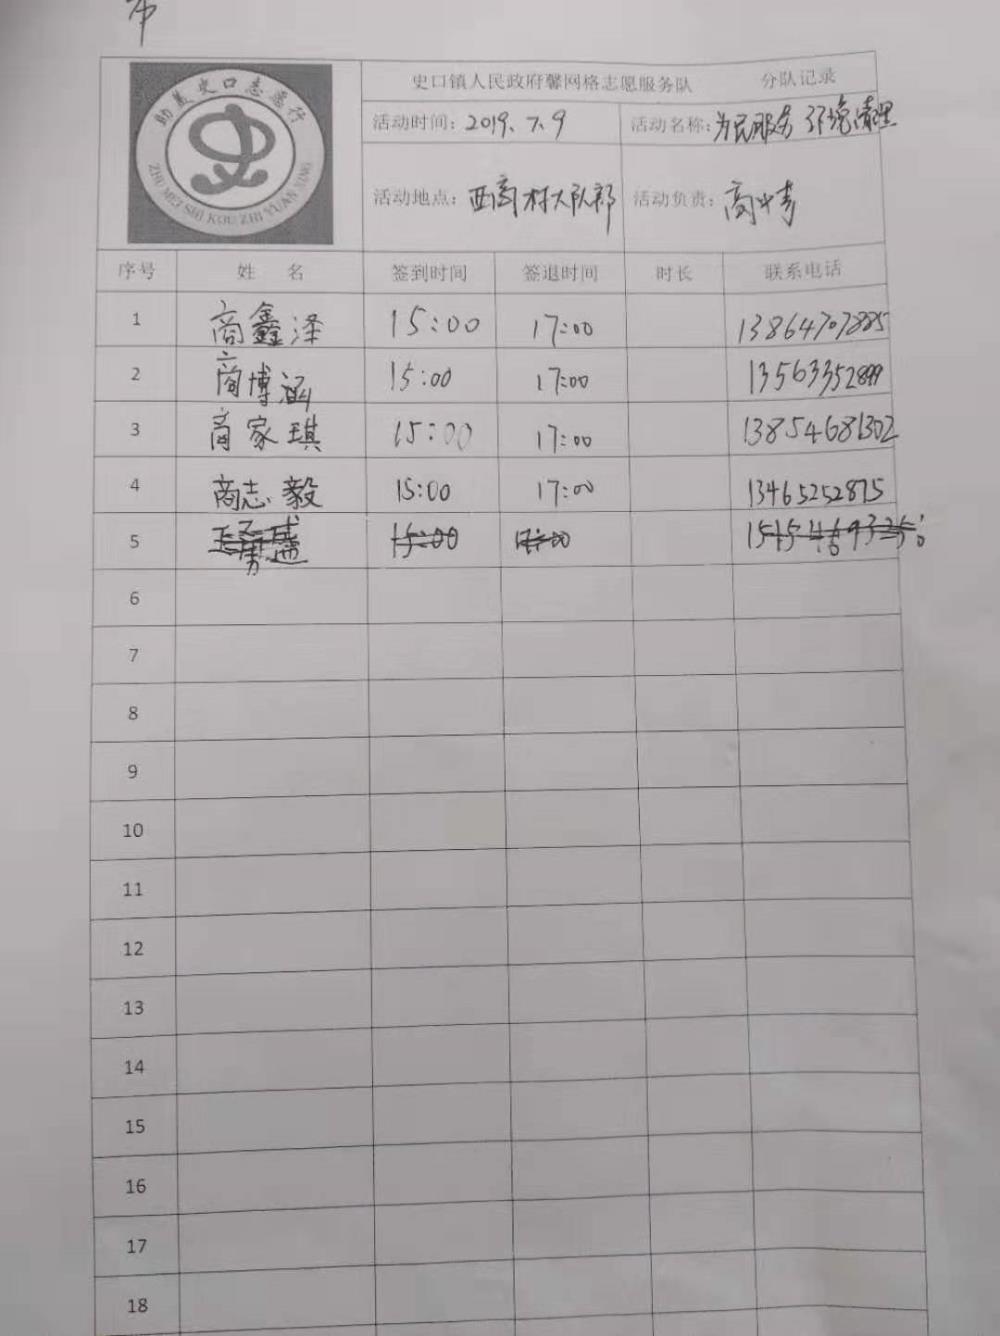 助美史口志愿行
ZHU MEI SHI KOU ZHI YUAN XING
史口镇人民政府馨网格志愿服务队 分队记录
活动时间: 2019.7.9 活动名称: 为民服务 环境清理
活动地点: 西商村大队部 活动负责:
序号 姓 名 签到时间 签退时间 时长 联系电话
1 商鑫泽 15:00 17:00 13864707885
2 商博涵 15:00 17:00 13563352899
3 商家琪 15:00 17:00 13854681302
4 商志毅 15:00 17:00 13465252875
5 15:00 17:00
6
7
8
9
10
11
12
13
14
15
16
17
18